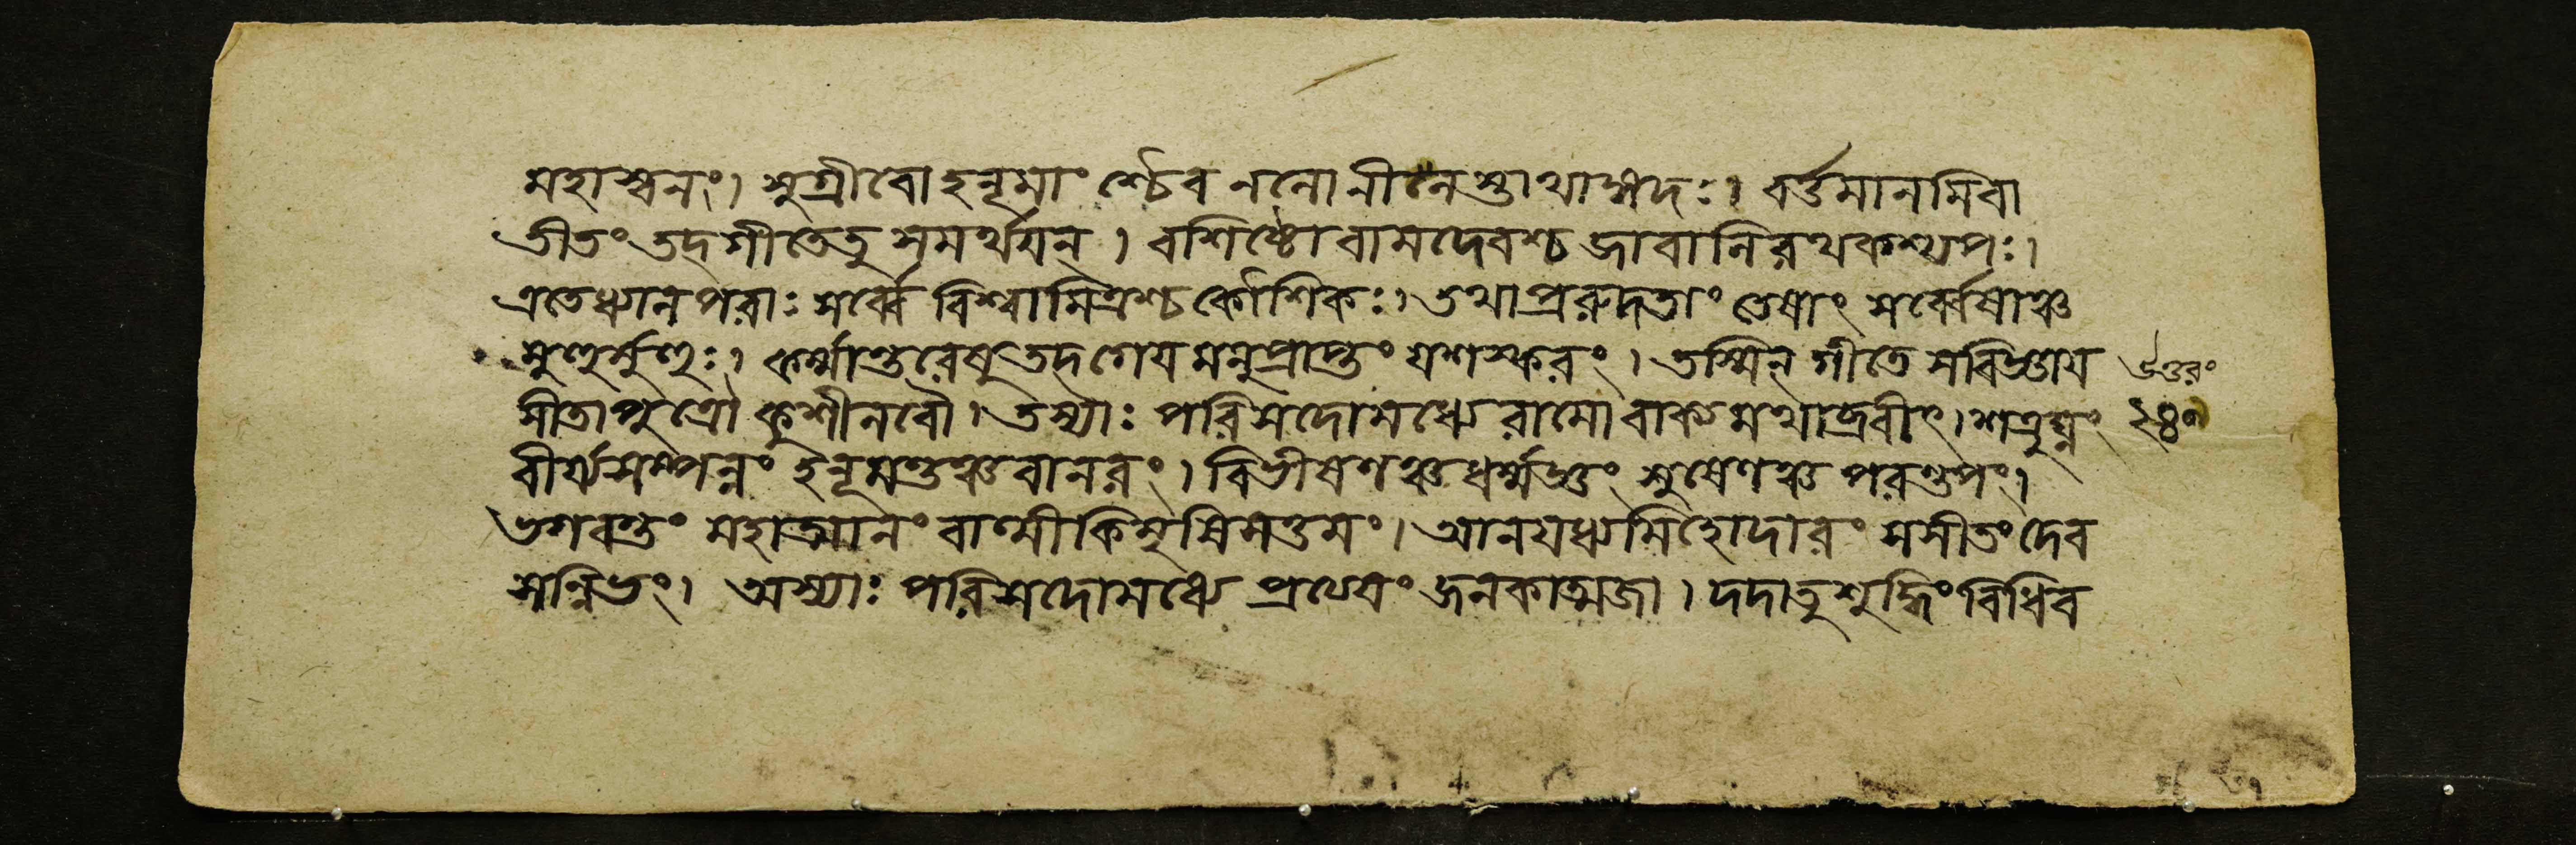 মহাস্বনং। সুগ্রীবো হনূমাংশ্চৈব নলো নীলস্তথাঙ্গদঃ। বর্ত্তমানমিবা
তীতং তদগীতেতু সমর্থয়ন্। বশিষ্ঠো বামদেবশ্চ জাবালিরথ কশ্যপঃ।
এতে ধ্যানপরাঃ সর্ব্বে বিশ্বামিত্রশ্চ কৌশিকঃ। তথা প্ররুদতাং তেষাং সর্ব্বেষাঞ্চ
মুহুর্মুহুঃ। কর্ম্মান্তরেষু তদগেয়মনুপ্রাপ্তং যশস্করং। তস্মিন্ গীতে স বিজ্ঞায়
সীতাপুত্রৌ কুশীলবৌ। তস্যাঃ পরিসদোমধ্যে রামো বাক্যমথাব্রবীৎ। শত্রুঘ্নং
বীর্য্যসম্পন্নং হনূমন্তঞ্চ বানরং। বিভীষণঞ্চ ধর্ম্মজ্ঞং সুষেণঞ্চ পরন্তপং।
ভগবন্তং মহাত্মানং বাল্মীকিমৃষিসত্তমং। আনয়ধ্বমিহোদারং সসীতং দেব
সন্নিভং। অস্যাঃ পরিসদোমধ্যে প্রত্যেয়ং জনকাত্মজা। দদাতু শুদ্ধিং বিধিব
উত্তরং